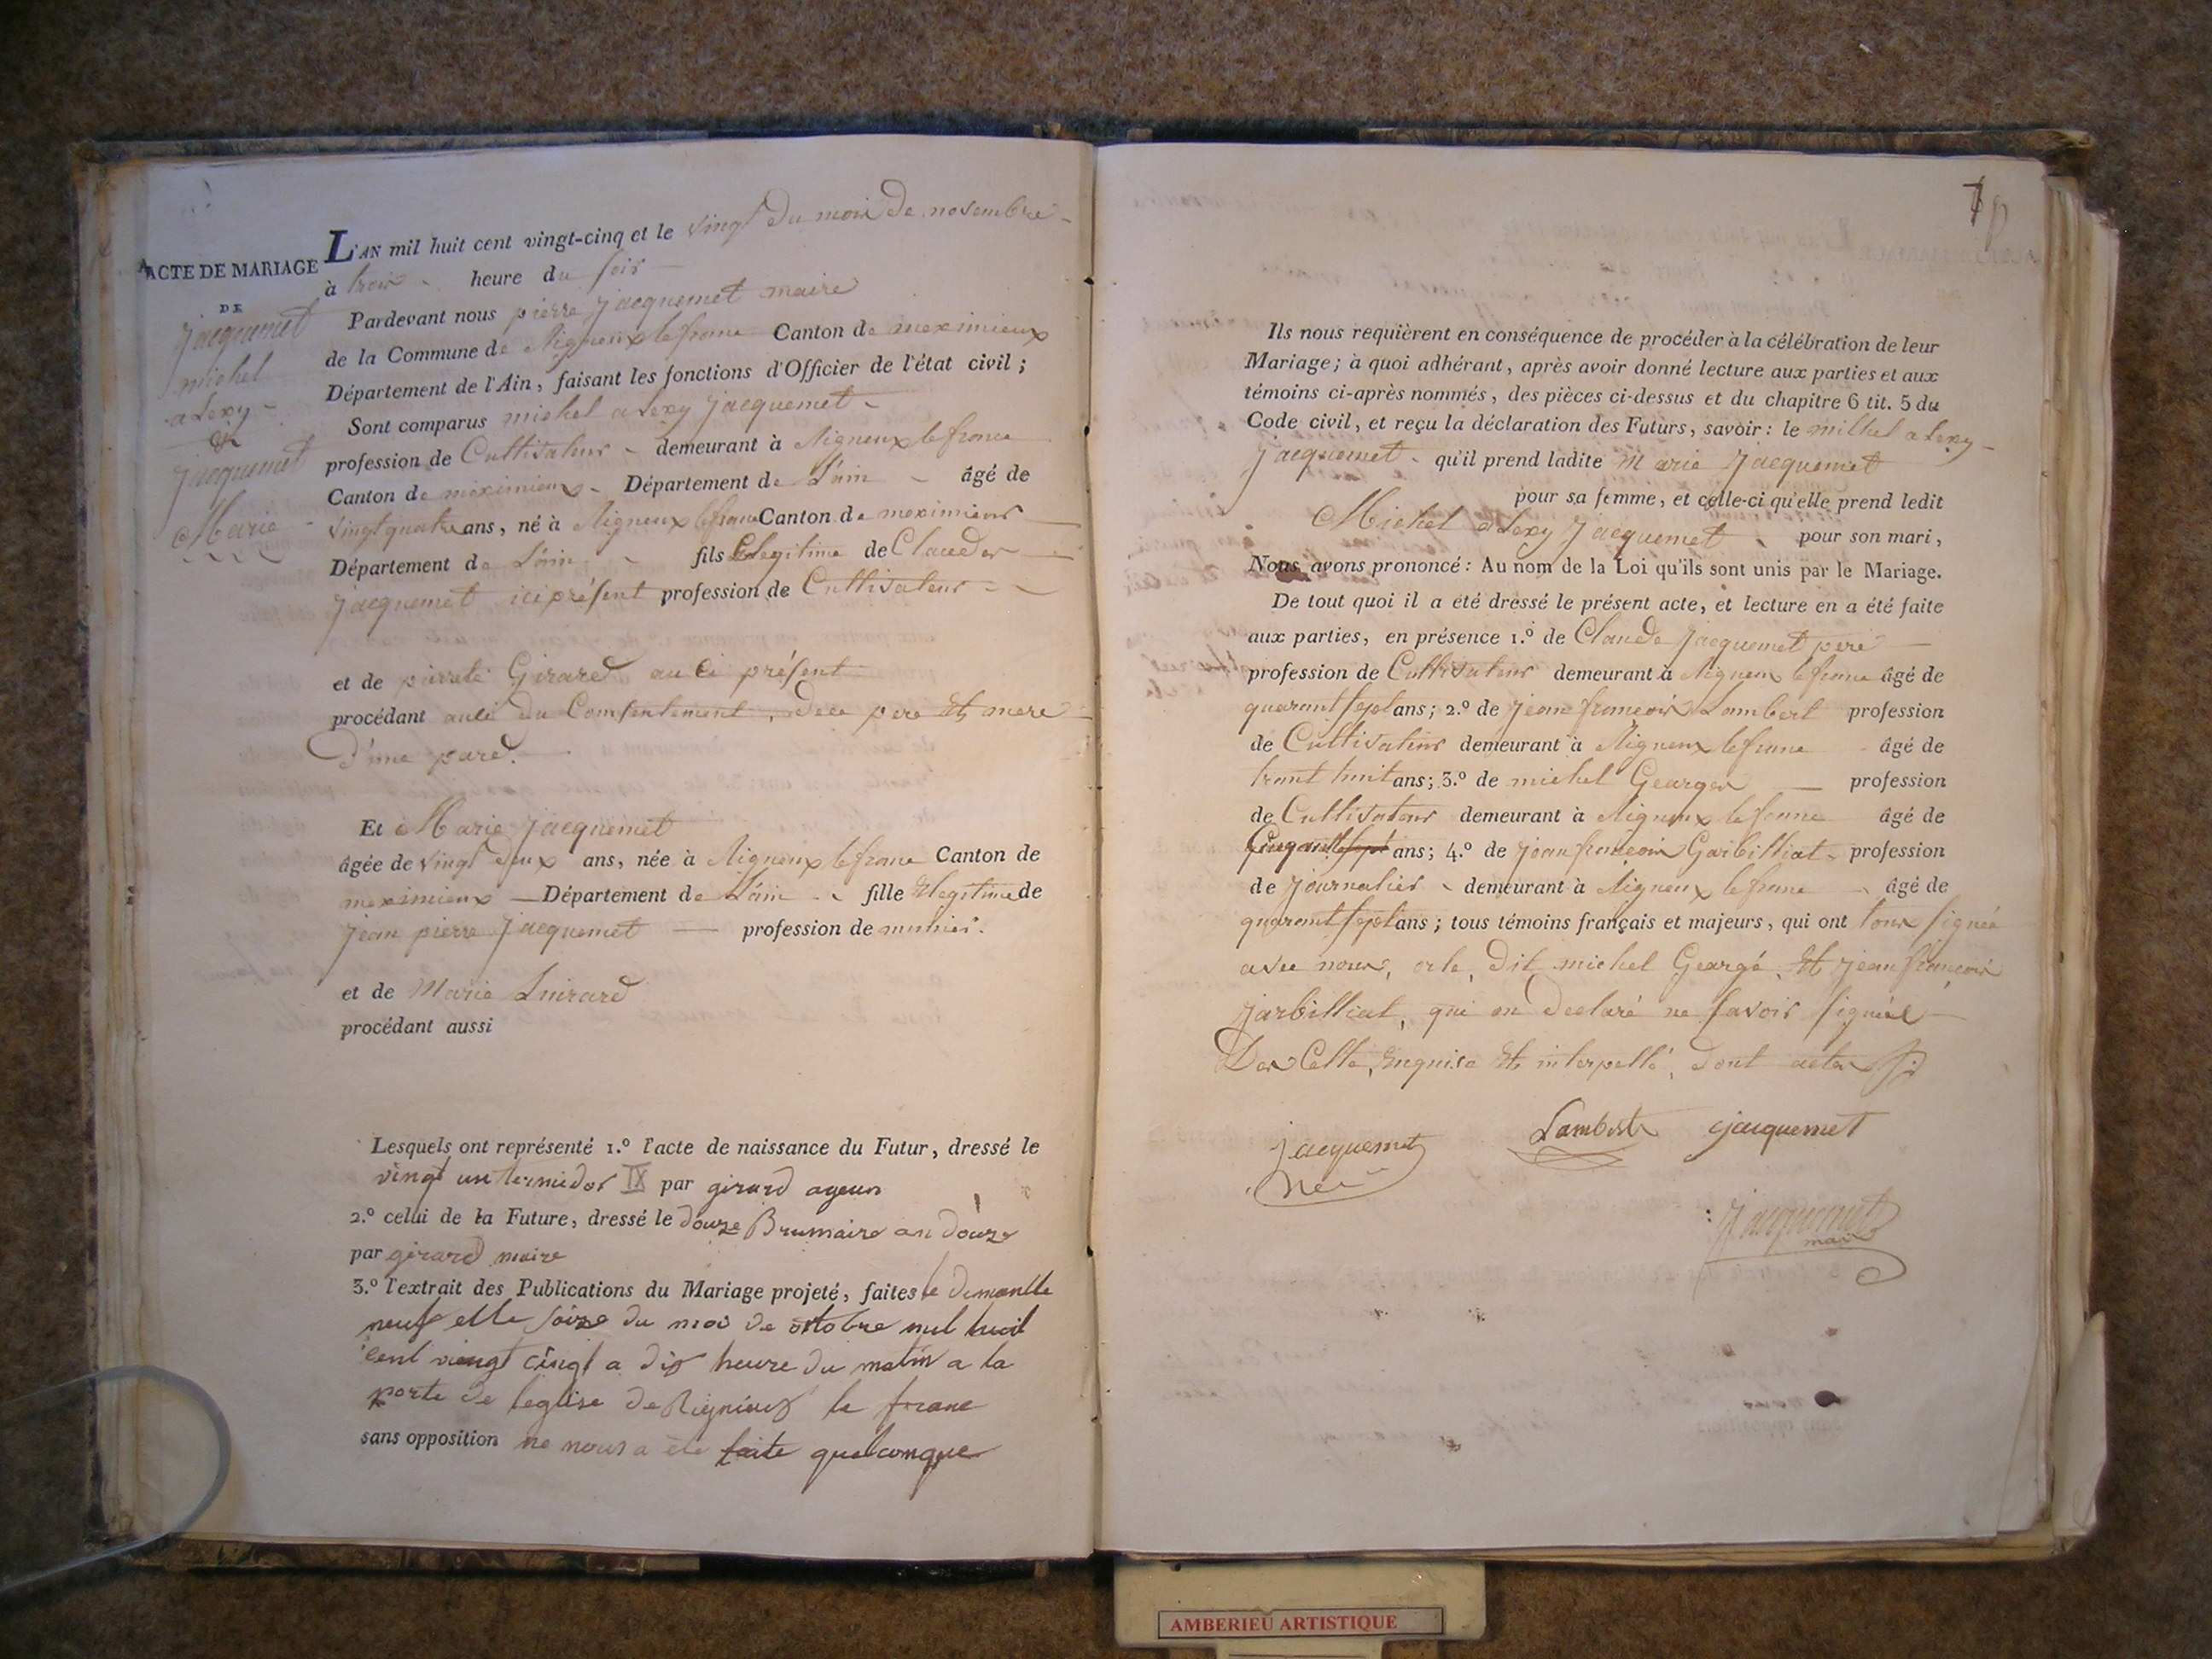 ACTE DE MARIAGE
DE
Jacquemet
michel
alexy
&
Jacquemet
Marie
L'AN mil huit cent vingt-cinq et le vingt du mois de novembre
à trois heure du soir
Pardevant nous pierre Jacquemet maire
de la Commune de Rigneux le franc Canton de meximieux
Département de l'Ain, faisant les fonctions d'Officier de l'état civil;
Sont comparus michel alexy Jacquemet
profession de Cultivateur demeurant à Rigneux le franc
Canton de meximieux Département de L'ain âgé de
vingt quatre ans, né à Rigneux le franc Canton de meximieux
Département de L'ain fils Elegitime de Claude
Jacquemet ici présent profession de Cultivateur
et de pierrete Girard auci présent
procédant auci du Consentement, dece pere Et mere
d'une pard.
Et Marie Jacquemet
âgée de vingt deux ans, née à Rigneux le franc Canton de
meximieux Département de L'ain fille Elegitime de
jean pierre Jacquemet profession de munier.
et de Marie
procédant aussi
Lesquels ont représenté 1.º l'acte de naissance du Futur, dressé le
vingt un termidor IX par girard
2.º celui de la Future, dressé le douze Brumaire an douze
par girard maire
3.º l'extrait des Publications du Mariage projeté, faites le dimanche
neuf et le seize du mois de octobre mil huit
cent vingt cingt a dix heure du matin a la
porte de leglise de Rignieux le franc
sans opposition ne nous a ete faite quelconque
Ils nous requièrent en conséquence de procéder à la célébration de leur
Mariage; à quoi adhérant, après avoir donné lecture aux parties et aux
témoins ci-après nommés, des pièces ci-dessus et du chapitre 6 tit. 5 du
Code civil, et reçu la déclaration des Futurs, savoir: le michel alexy
Jacquemet qu'il prend ladite Marie Jacquemet
pour sa femme, et celle-ci qu'elle prend ledit
Michel alexy Jacquemet pour son mari,
Nous avons prononcé: Au nom de la Loi qu'ils sont unis par le Mariage.
De tout quoi il a été dressé le présent acte, et lecture en a été faite
aux parties, en présence 1.º de Claude Jacquemet pere
profession de Cultivateur demeurant à Rigneux le franc âgé de
quarant sept ans; 2.º de jean françois Lambert profession
de Cultivateur demeurant à Rigneux le franc âgé de
trant huit ans; 3.º de michel Georges profession
de Cultivateur demeurant à Rigneux le franc âgé de
ans; 4.º de jean françois Garbilliat profession
de journalier demeurant à Rigneux le franc âgé de
quarant sept ans; tous témoins français et majeurs, qui ont tous signée
avec nous, dit michel Geargé, Et jean françois
jarbilliat, qui on declaré ne savoir signée
De Cette Enquise Et interpellé, dont acte
jacquemet
Lambert
jacquemet
Jacquemet
maire
AMBERIEU ARTISTIQUE